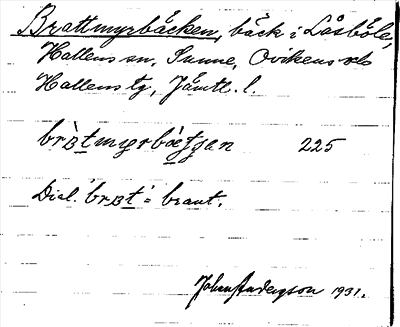 Brattmyrbäcken, bäck i Låsböle,
Hallens sn, Sunne, Ovikens o
Hallens tg, Jämtl. l.
brɒ̀tmyrbæ̀ʃʃɑn 225
Dial. brɒt = brant.
Johan Anderson 1931.